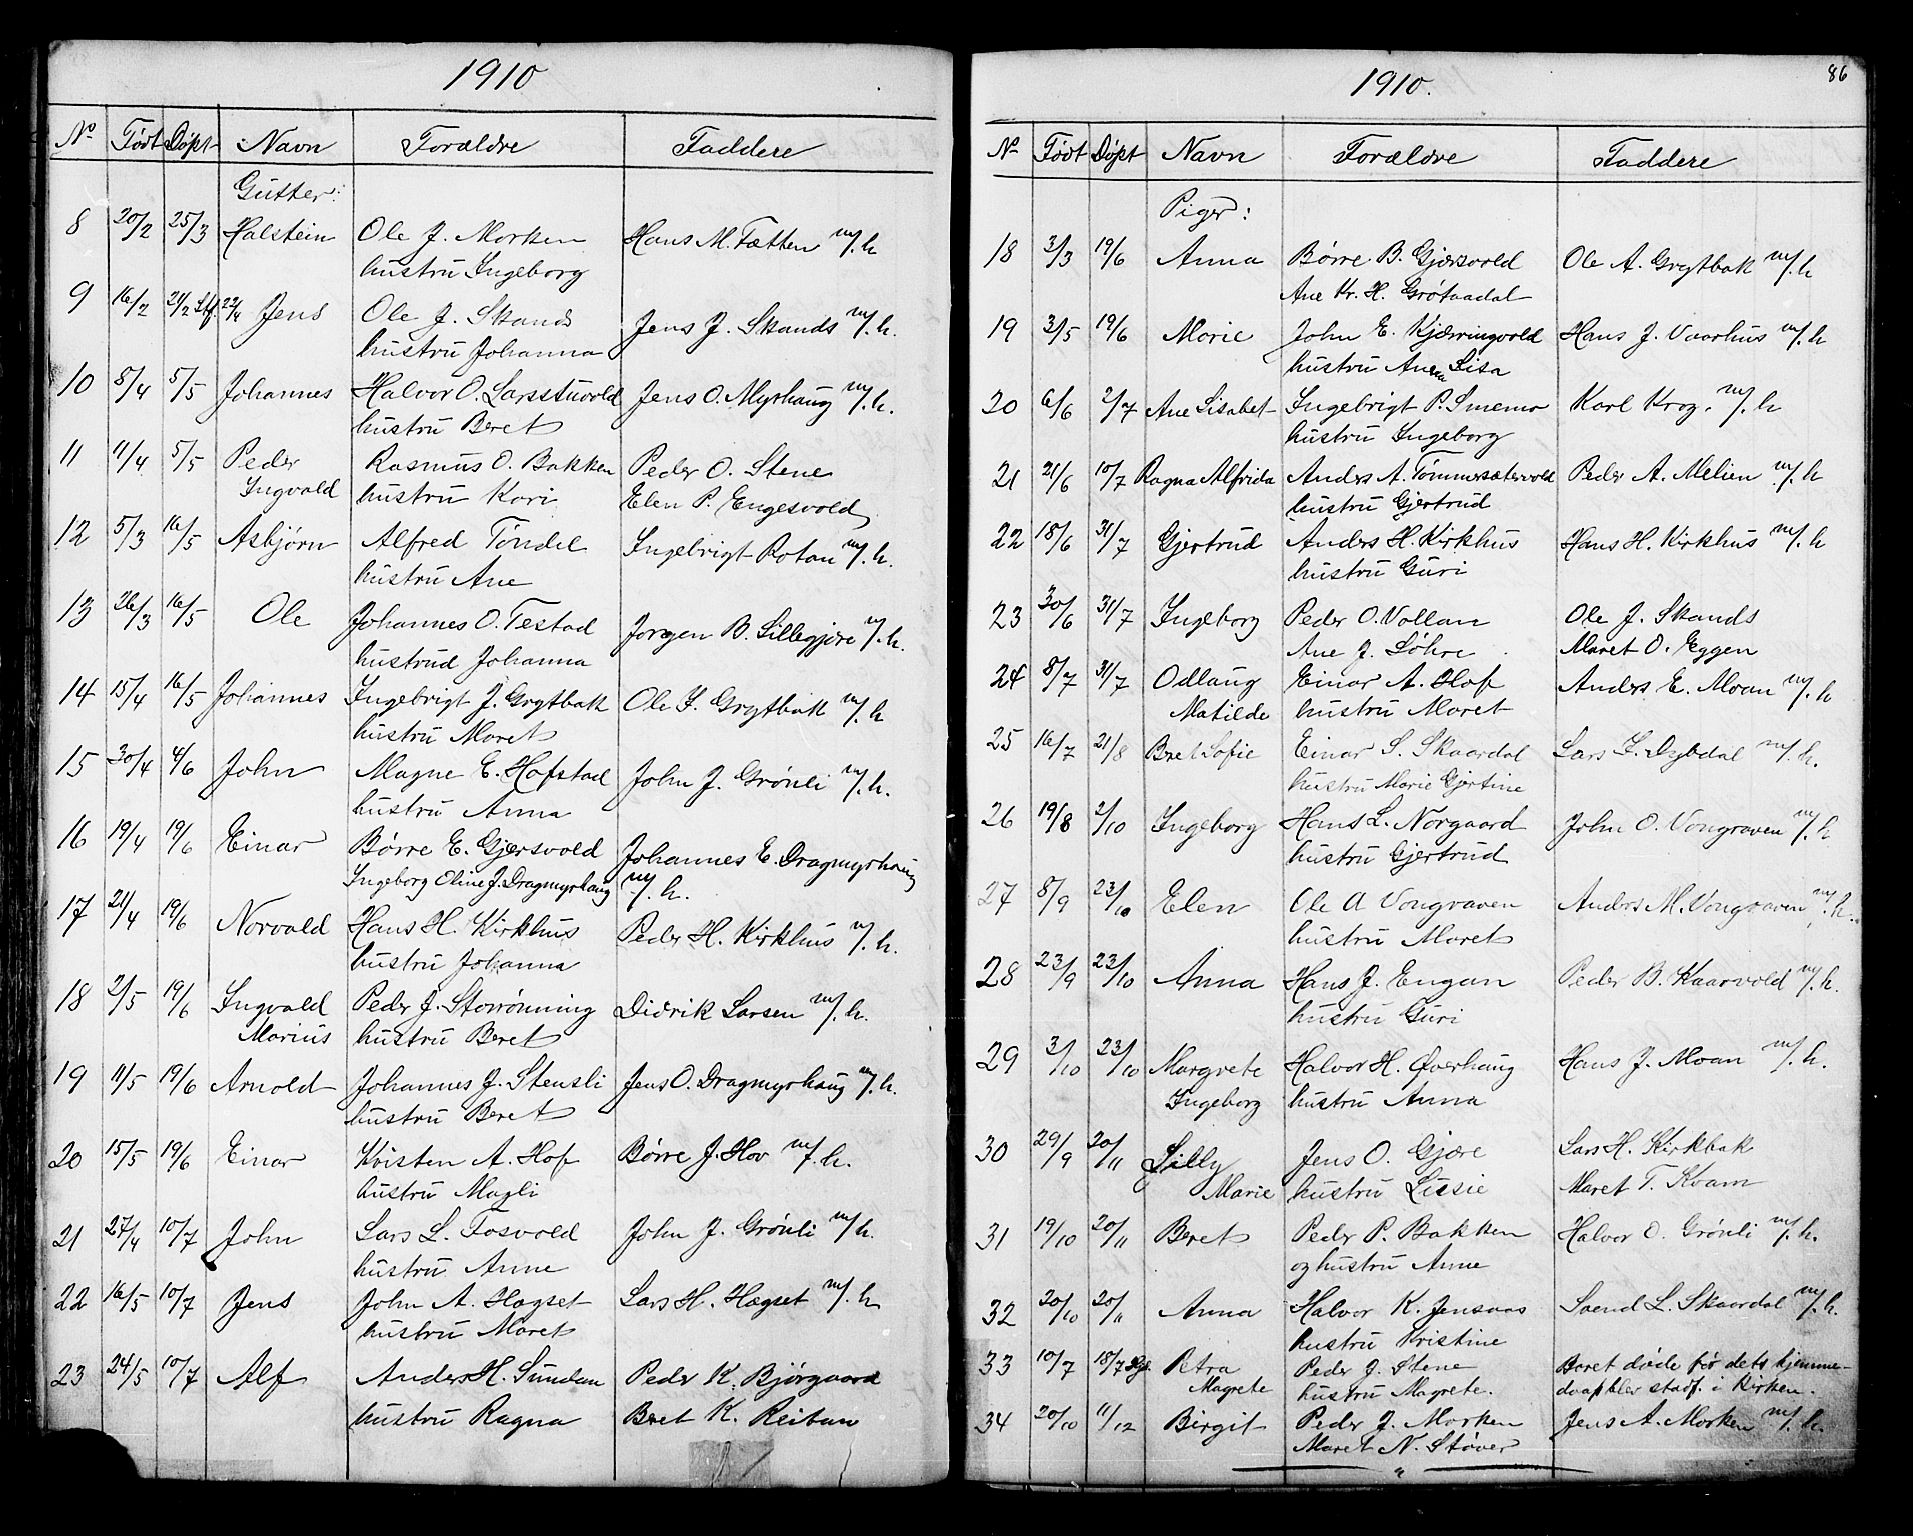 1910
No Født Døpt Navn Forældre Faddere
Gutter:
8 20/2 25/3 Halstein Ole J. Morken Hans M. Fætten m/. h
hustru Ingeborg
9 16/2 21/2 Stf. 22/4 Jens Ole J. Skands Jens J. Skands m/. h.
hustru Johanna
10 8/4 5/5 Johannes Halvor O. Larsstuvold Jens O. Myrhaug m/. h.
hustru Beret
11 11/4 5/5 Peder Rasmus O. Bakken Peder O. Stene
Ingvald hustru Kari Elen P. Engesvold
12 5/3 16/5 Asbjørn Alfred Tøndel Ingebrigt Rotan m/. h.
hustru Ane
13 26/3 16/5 Ole Johannes O. Testad Jørgen B. Lillegjøre m/. h.
hustrud Johanna
14 15/4 16/5 Johannes Ingebrigt J. Grytbak Ole I. Grytbak m/. h
hustru Maret
15 30/4 4/6 John Magne E. Hofstad John J. Grønli m/. h.
hustru Anna
16 19/4 19/6 Einar Børre E. Gjersvold Johannes E. Dragmyrhaug
Ingeborg Oline J. Dragmyrhaug m/. h.
17 21/4 19/6 Norvald Hans H. Kirkhus Peder H. Kirkhus m/. h.
hustru Johanna
18 2/5 19/6 Ingvald Peder J. Storrønning Didrik Larsen m/. h.
Marius hustru Beret
19 11/5 19/6 Arnold Johannes J. Stensli Jens O. Dragmyrhaug m/. h.
hustru Beret
20 15/5 19/6 Einar Kristen A. Hof Børre J. Hov m/. h.
hustru Magli
21 27/4 10/7 John Lars L. Fosvold John J. Grønli m/. h.
hustru Anne
22 16/5 10/7 Jens John A. Hagset Lars H. Hagset m/. h
hustru Maret
23 24/5 10/7 Alf Anders H. Sundan Peder K. Bjørgaard
hustru Ragna Beret K. Reitan
86
1910.
No Født Døpt Navn Forældre Faddere
Piger:
18 3/3 19/6 Anna Børre B. Gjersvold Ole A. Grytbak m/. h
Ane Kr. H. Grøtaadal
19 3/5 19/6 Marie John E. Kjærringvold Hans J. Vaarhus m/. h
hustru Anna Lisa
20 6/6 2/7 Ane Lisabet Ingebrigt P. Smemo Karl Krog. m/. h
hustru Ingeborg
21 21/6 10/7 Ragna Alfrida Anders A. Tømmersætervold Peder A. Melien m/. h
hustru Gjertrud
22 18/6 31/7 Gjertrud Anders H. Kirkhus Hans H. Kirkhus m/. h
hustru Guri
23 30/6 31/7 Ingeborg Peder O. Vollan Ole J. Skands
Ane J. Løhre Maret O. Eggen
24 8/7 31/7 Odlaug Einar A. Hof Anders E. Moan m/. h
Matilde hustru Maret
25 16/7 21/8 Beret Sofie Einar S. Skaardal Lars I. Dybdal m/. h.
hustru Marie Gjertine
26 19/8 2/10 Ingeborg Hans L. Norgaard John O. Vongraven m/. h
hustru Gjertrud
27 8/9 23/10 Elen Ole A Vongraven Anders M. Vongraven m/. h.
hustru Maret
28 23/9 23/10 Anna Hans J. Engan Peder B. Kaarvold m/. h.
hustru Guri
29 3/10 23/10 Margrete Halvor H. Øverhaug Hans J. Moan m/. h.
Ingeborg hustru Anna
30 29/9 20/11 Lilly Jens O. Gjære Lars H. Kirkbak
Marie hustru Lissie Maret T. Kvam
31 19/10 20/11 Beret Peder P. Bakken Halvor O. Grønli m/. h.
og hustru Anne
32 20/10 20/11 Anna Halvor K. Jensaas Svend L. Skaardal m/. h.
hustru Kristine
33 10/7 18/7 Petra Peder J. Stene Baret døde før dets hjemme-
Magrete hustru Magrete. daap blev stadf. i Kirken.
34 20/10 11/12 Birgit Peder J. Morken Jens A. Morken m/. h.
Maret N. Støver